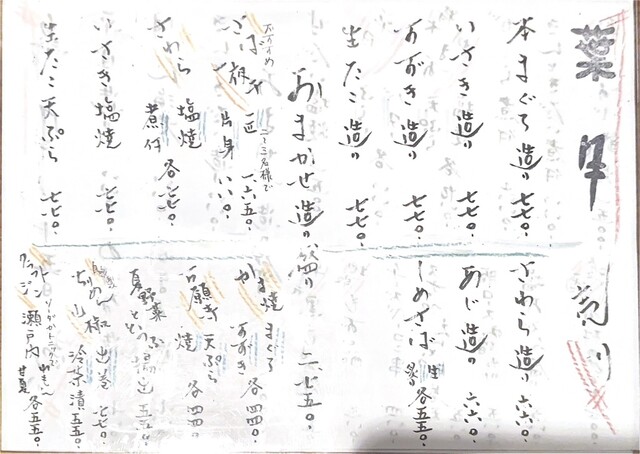 葉月
本まぐろ造り 七七〇.
いさき造り 七七〇.
すずき造り 七七〇.
生たこ造り 七七〇.
おまかせ造り盛り 二.七五〇.
おすすめ
二〜三名様で
さば 一匹 一六五〇.
半身 一一〇〇.
さわら 塩焼 煮付 各七七〇.
いさき塩焼 七七〇.
生たこ天ぷら 七七〇.
さわら造り 六六〇.
あじ造り 六六〇.
しめさば 生 炙り 各五五〇.
かま焼 まぐろ すずき 各四四〇.
万願寺 天ぷら 焼 各四四〇.
夏野菜 五五〇.
出巻 七七〇.
冷菜漬 五五〇.
クラフトジン 瀬戸内
ソーダかトニックで
れもん
甘夏 各五五〇.